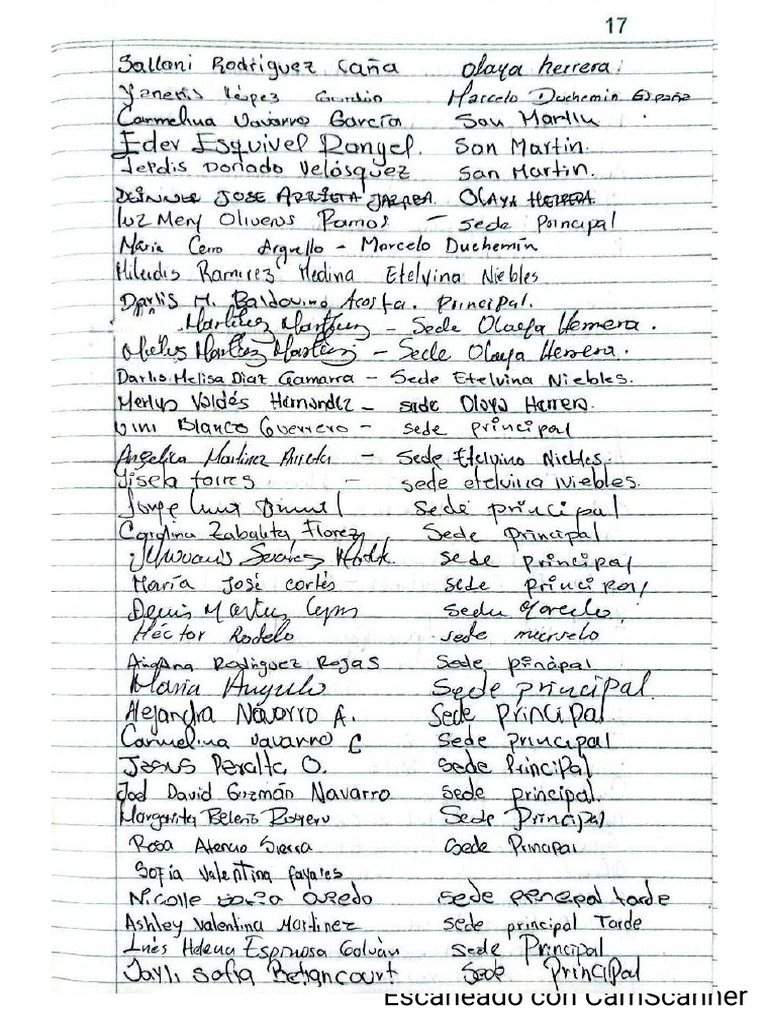 17
Sallani Rodriguez Caña olaya herrera.
Yaneris López Marcelo Duchemin España
Carmelina Navarro García San Martin
Eder Esquivel Rangel. San Martin.
Doñado Velásquez San Martin.
JOSE ARRIETA OLAYA HERRERA
Luz Mery Oliveros Ramos - sede principal
María Cerro Arguello - Marcelo Duchemín
Hileidis Ramirez Medina Etelvina Niebles
Darlis M. Baldovino Acosta. principal.
Martinez Martinez - Sede Olaya Herrera.
Martinez Martinez - Sede Olaya Herrera.
Darlis Melisa Diaz Gamarra - Sede Etelvina Niebles.
Merlys Valdés Hernandez - sede Olaya Herrera.
Blanco Guerrero - sede principal
Angelica Martinez Arrieta - Sede Etelvina Niebles.
Jisela torres - sede etelvina Niebles.
Jorge Sede principal
Carolina Zabaleta Florez Sede Principal
Suarez sede principal
María José cortés sede principal
Denis Sede Marcelo
Héctor Rodelo sede
Rodriguez Rojas Sede principal
María Angulo Sede principal.
Alejandra Navarro A. Sede Principal
Carmelina Navarro G Sede principal
Jesus Peralta O. Sede Principal
Joel David Guzmán Navarro Sede principal.
Margarita Beleño Romero Sede Principal
Rosa Atencio Sierra Sede Principal
Sofía Valentina fayares
Nicolle Oviedo sede principal tarde
Ashley Valentina Martinez sede principal Tarde
Inés Helena Espinosa Galván sede Principal
Sofia Betancourt Sede Principal
Escaneado con CamScanner